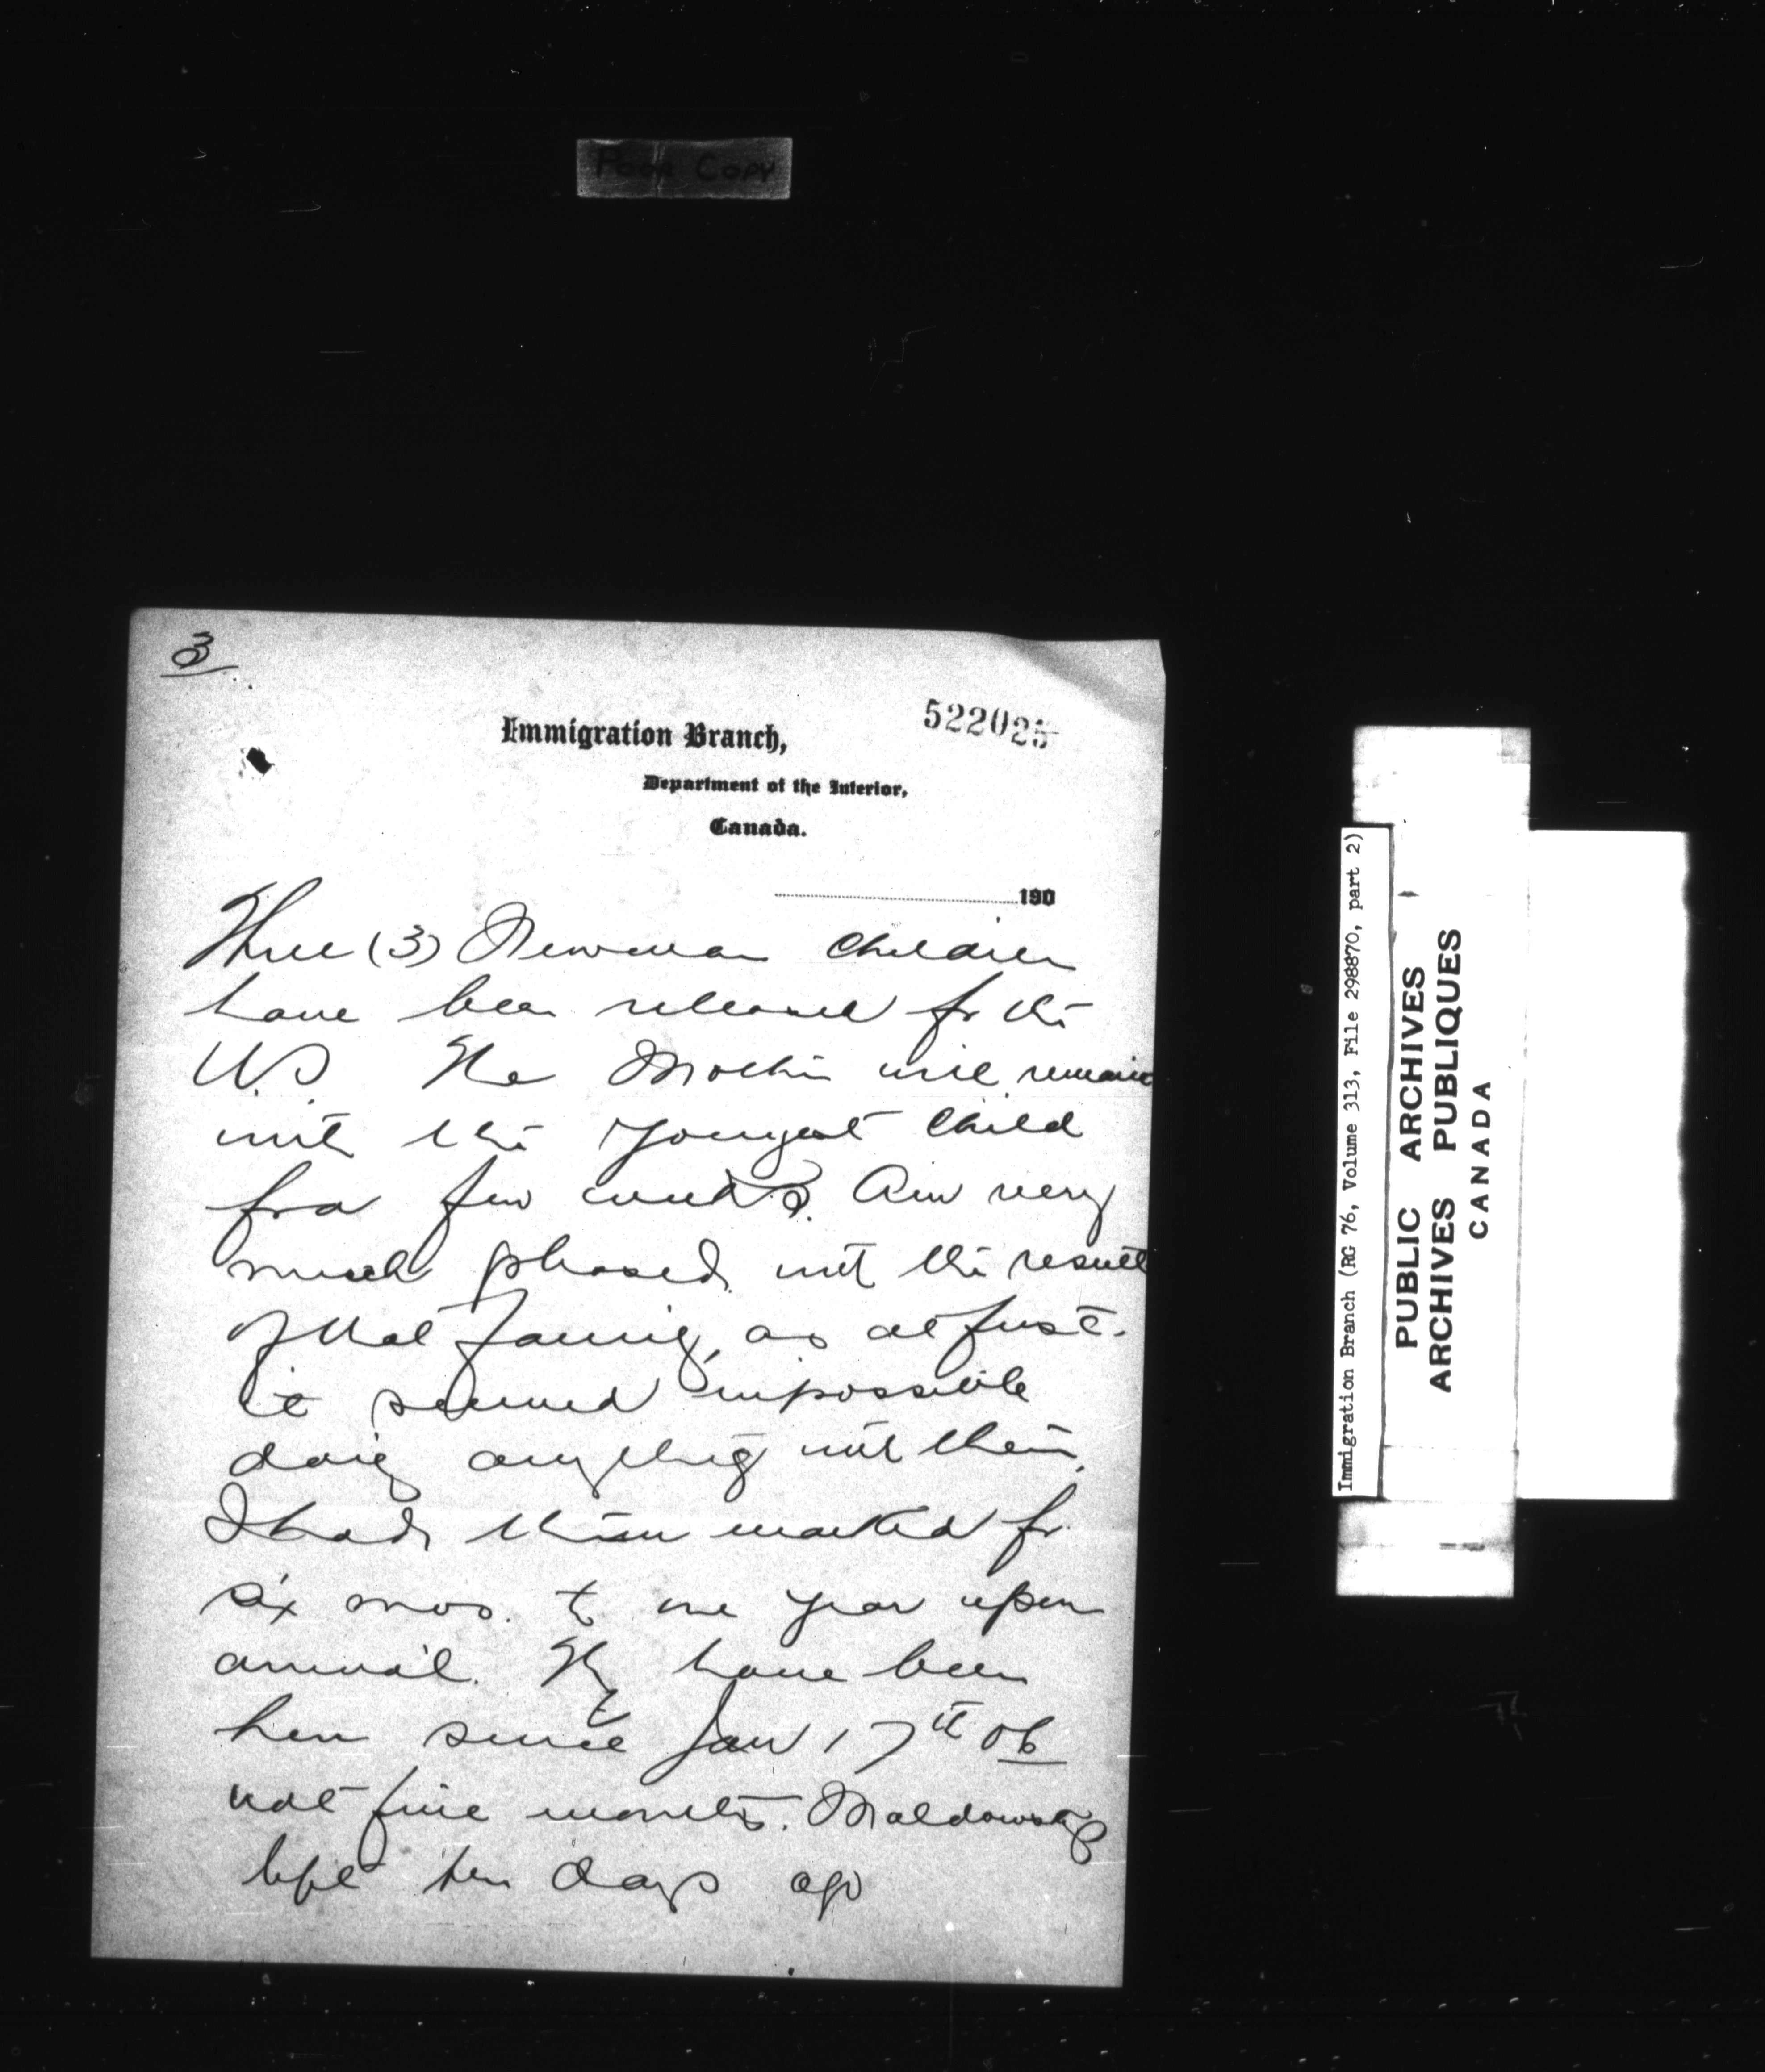 Poor Copy
3
522025
Immigration Branch,
Department of the Interior,
Canada.
190
Three (3) Newman children
have been released for the
U.S. The Mother will remain
with the youngest child
for a few weeks. Am very
much pleased with the result
of that family, as at first
it seemed impossible
doing anything with them.
I had them marked for
six mos. to one year upon
arrival. They have been
here since Jan 17th 06
not five months. Maldowsky
left ten days ago
Immigration Branch (RG 76, Volume 313, File 298870, part 2)
PUBLIC ARCHIVES
ARCHIVES PUBLIQUES
CANADA